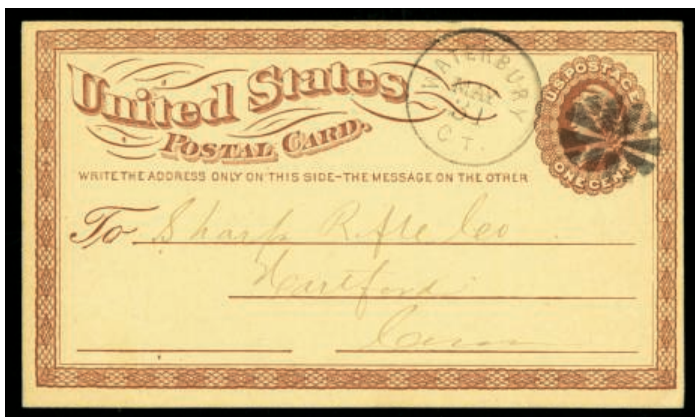 United States
POSTAL CARD.
WATERBURY
MAY
31
CT.
U.S. POSTAGE
ONE CENT
WRITE THE ADDRESS ONLY ON THIS SIDE-THE MESSAGE ON THE OTHER
To Sharps Rifle Co
Hartford
Conn